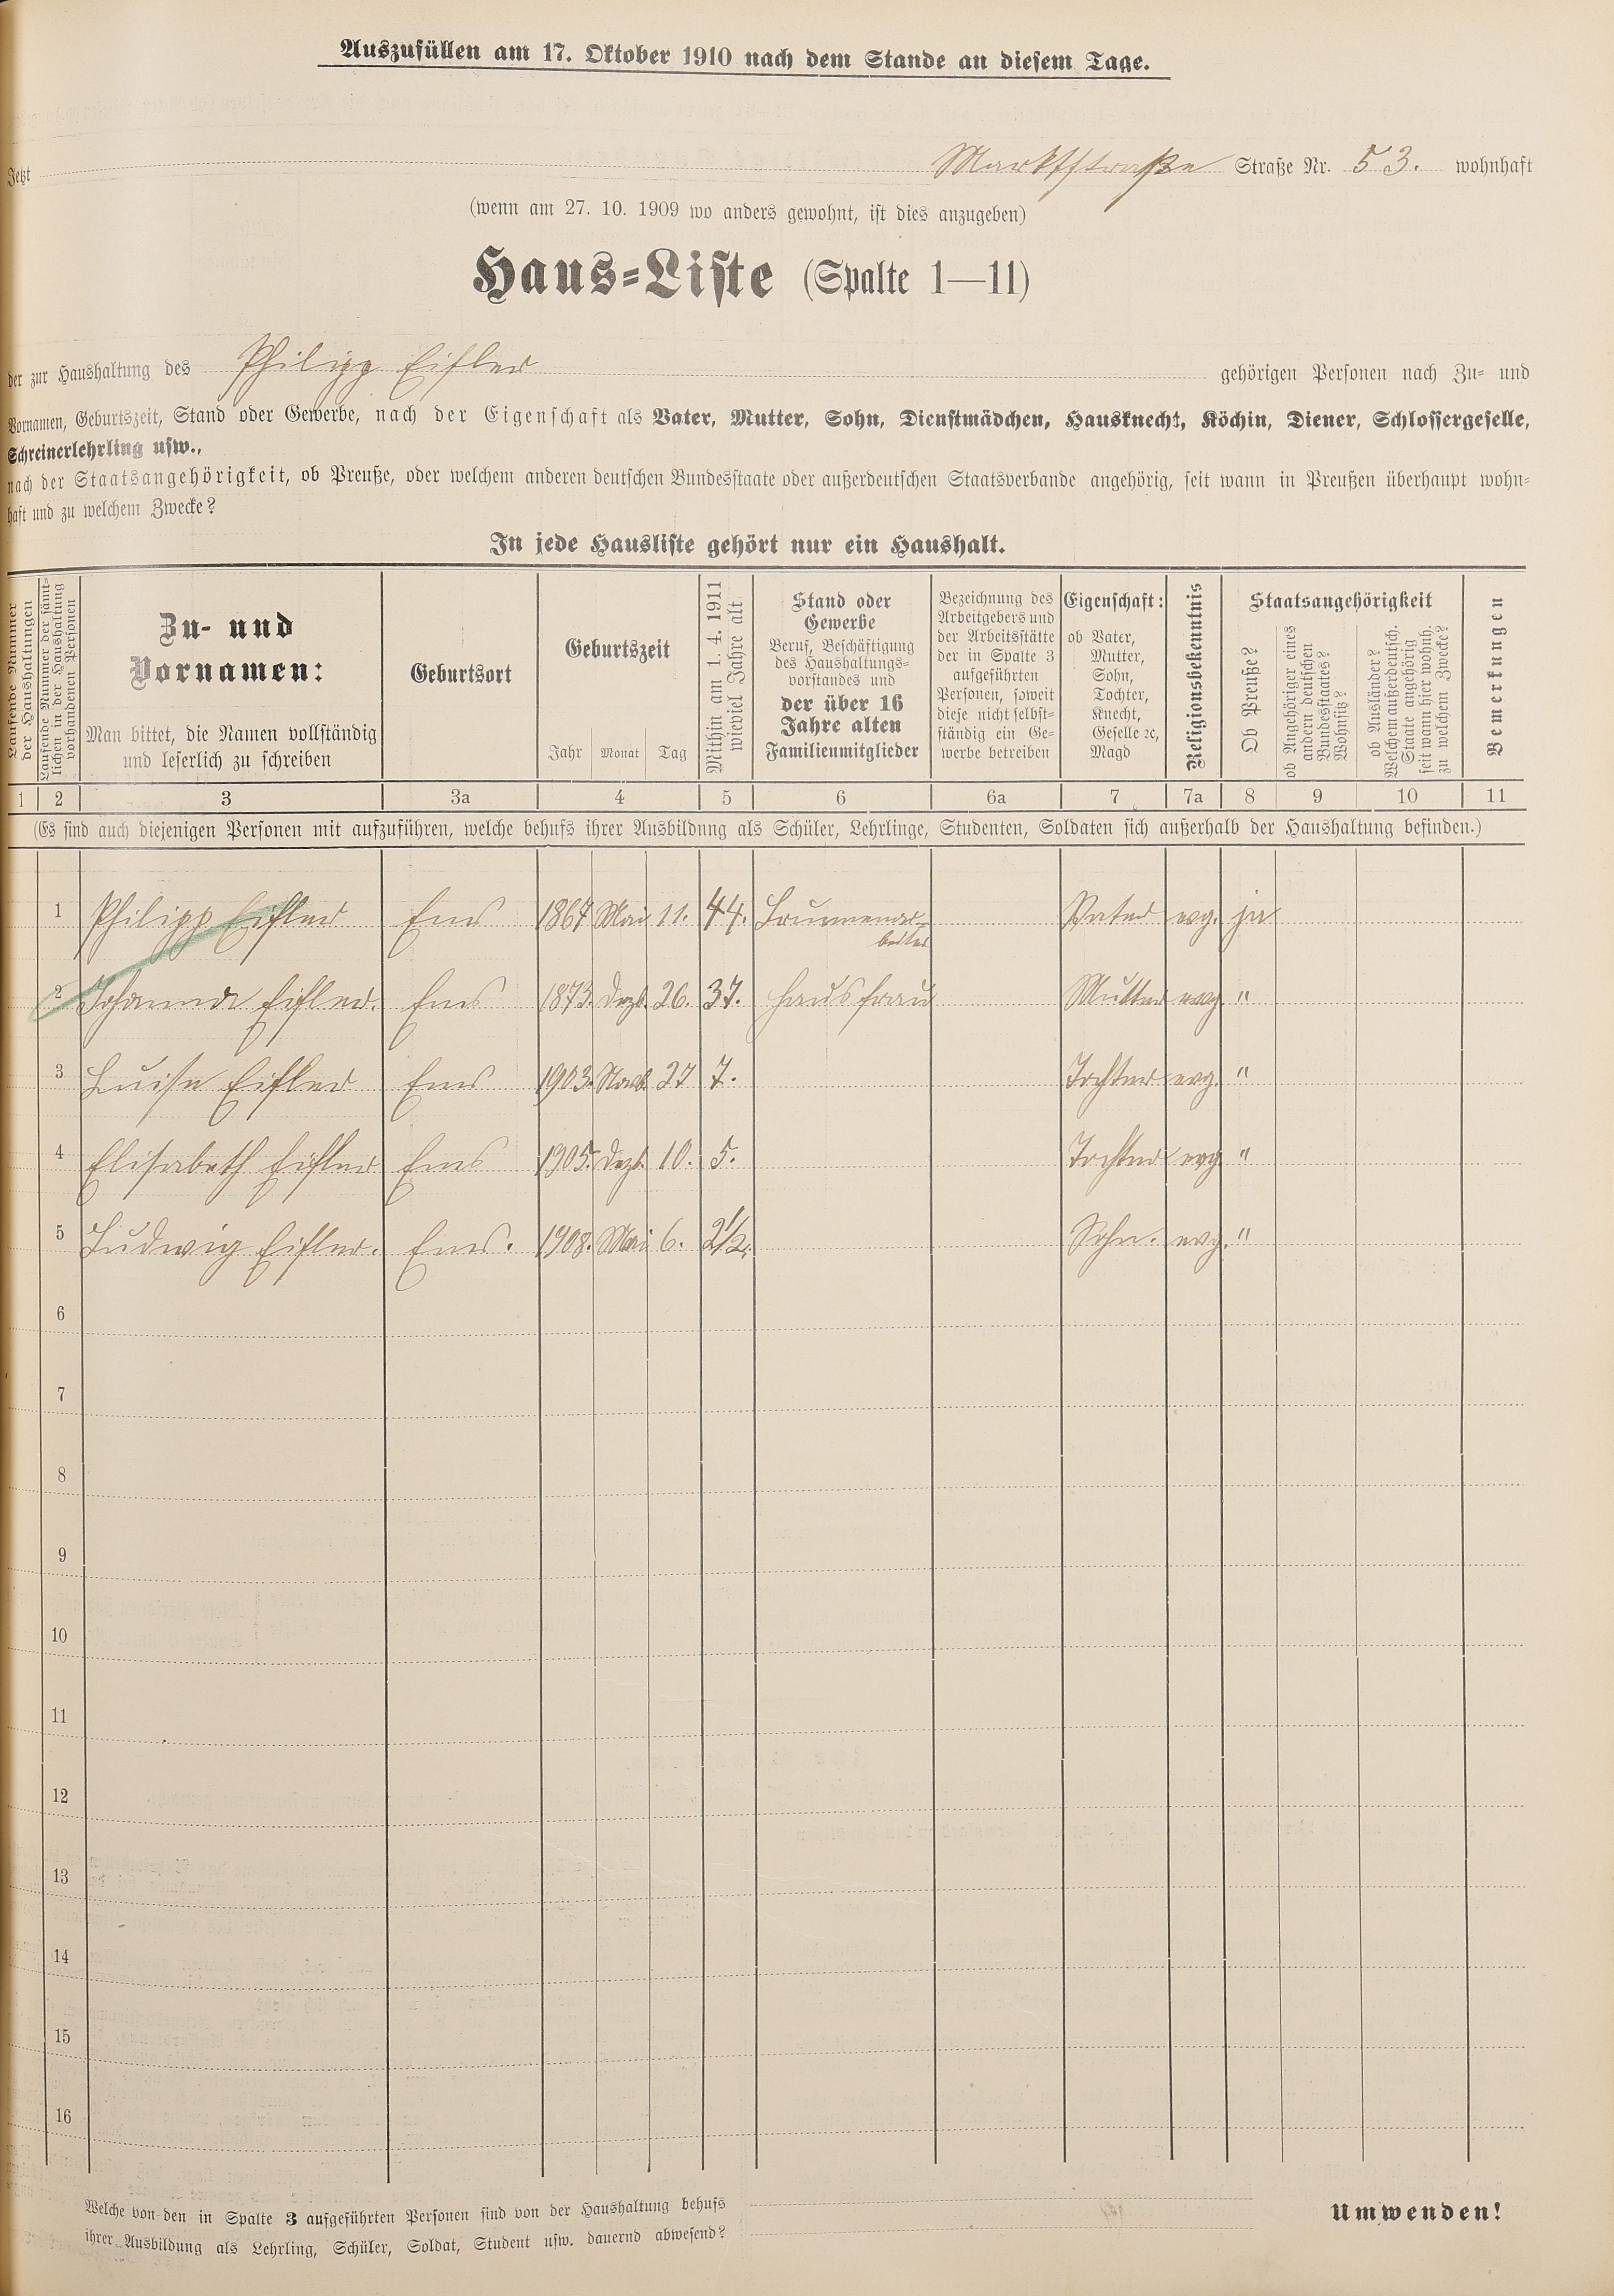 Auszufüllen am 17. Oktober 1910 nach dem Stande an diesem Tage.
Jetzt Marktstraße Straße Nr. 53. wohnhaft
(wenn am 27. 10. 1909 wo anders gewohnt, ist dies anzugeben)
Haus-Liste (Spalte 1—11)
der zur Haushaltung des Philipp Eifler gehörigen Personen nach Zu- und
Vornamen, Geburtszeit, Stand oder Gewerbe, nach der Eigenschaft als Vater, Mutter, Sohn, Dienstmädchen, Hausknecht, Köchin, Diener, Schlossergeselle,
Schreinerlehrling usw.,
nach der Staatsangehörigkeit, ob Preuße, oder welchem anderen deutschen Bundesstaate oder außerdeutschen Staatsverbande angehörig, seit wann in Preußen überhaupt wohn-
haft und zu welchem Zwecke?
In jede Hausliste gehört nur ein Haushalt.
Laufende Nummer
der Haushaltungen
Laufende Nummer der sämt-
lichen in der Haushaltung
vorhandenen Personen
Zu- und
Vornamen:
Man bittet, die Namen vollständig
und leserlich zu schreiben
Geburtsort
Geburtszeit
Jahr Monat Tag
Mithin am 1. 4. 1911
wieviel Jahre alt
Stand oder
Gewerbe
Beruf, Beschäftigung
des Haushaltungs-
vorstandes und
der über 16
Jahre alten
Familienmitglieder
Bezeichnung des
Arbeitgebers und
der Arbeitsstätte
der in Spalte 3
aufgeführten
Personen, soweit
diese nicht selbst-
ständig ein Ge-
werbe betreiben
Eigenschaft:
ob Vater,
Mutter,
Sohn,
Tochter,
Knecht,
Geselle ꝛc,
Magd
Religionsbekenntnis
Staatsangehörigkeit
Ob Preuße?
ob Angehöriger eines
andern deutschen
Bundesstaates?
Wohnsitz?
ob Ausländer?
Welchem außerdeutsch.
Staate angehörig
seit wann hier wohnh.
zu welchem Zwecke?
Bemerkungen
1 2 3 3a 4 5 6 6a 7 7a 8 9 10 11
(Es sind auch diejenigen Personen mit aufzuführen, welche behufs ihrer Ausbildung als Schüler, Lehrlinge, Studenten, Soldaten sich außerhalb der Haushaltung befinden.)
1 Philipp Eifler Ems 1867 Mai 11. 44. Brunnenar-
beiter Vater evg. ja
2 Johanna Eifler. Ems 1873. Dezb. 26. 37. Hausfrau Mutter evg. "
3 Luise Eifler Ems 1903. Novb. 27 7. Tochter evg. "
4 Elisabeth Eifler Ems 1905. Dezb. 10. 5. Tochter evg. "
5 Ludwig Eifler. Ems. 1908. Mai 6. 2½. Sohn. evg. "
6
7
8
9
10
11
12
13
14
15
16
Welche von den in Spalte 3 aufgeführten Personen sind von der Haushaltung behufs
ihrer Ausbildung als Lehrling, Schüler, Soldat, Student usw. dauernd abwesend?
Umwenden!